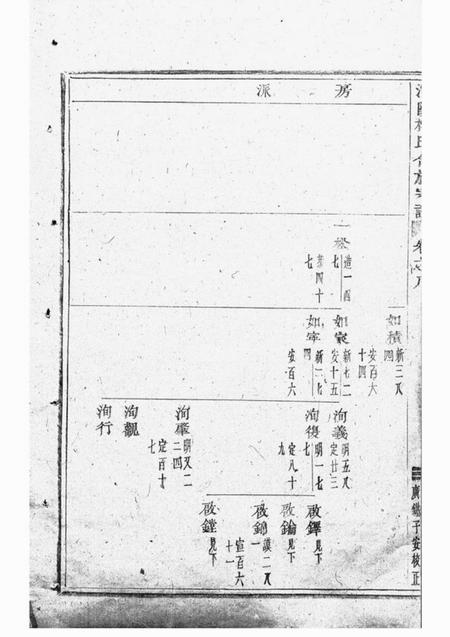 房派
卷之八
一松
造一百
七
四十
七
如積
新三八
四
安百六
十四
如宸
新七二
安十五
如寧
新一七
四
安百六
洵義
明五八
定廿三
洵復
明一七
七
定八十
九
洵肇
明又二
二四
定百十
七
洵觀
洵行
啟鐸
見下
啟鑰
見下
啟錦
漢二八
一
宣百六
十一
啟鏜
見下
子安校正